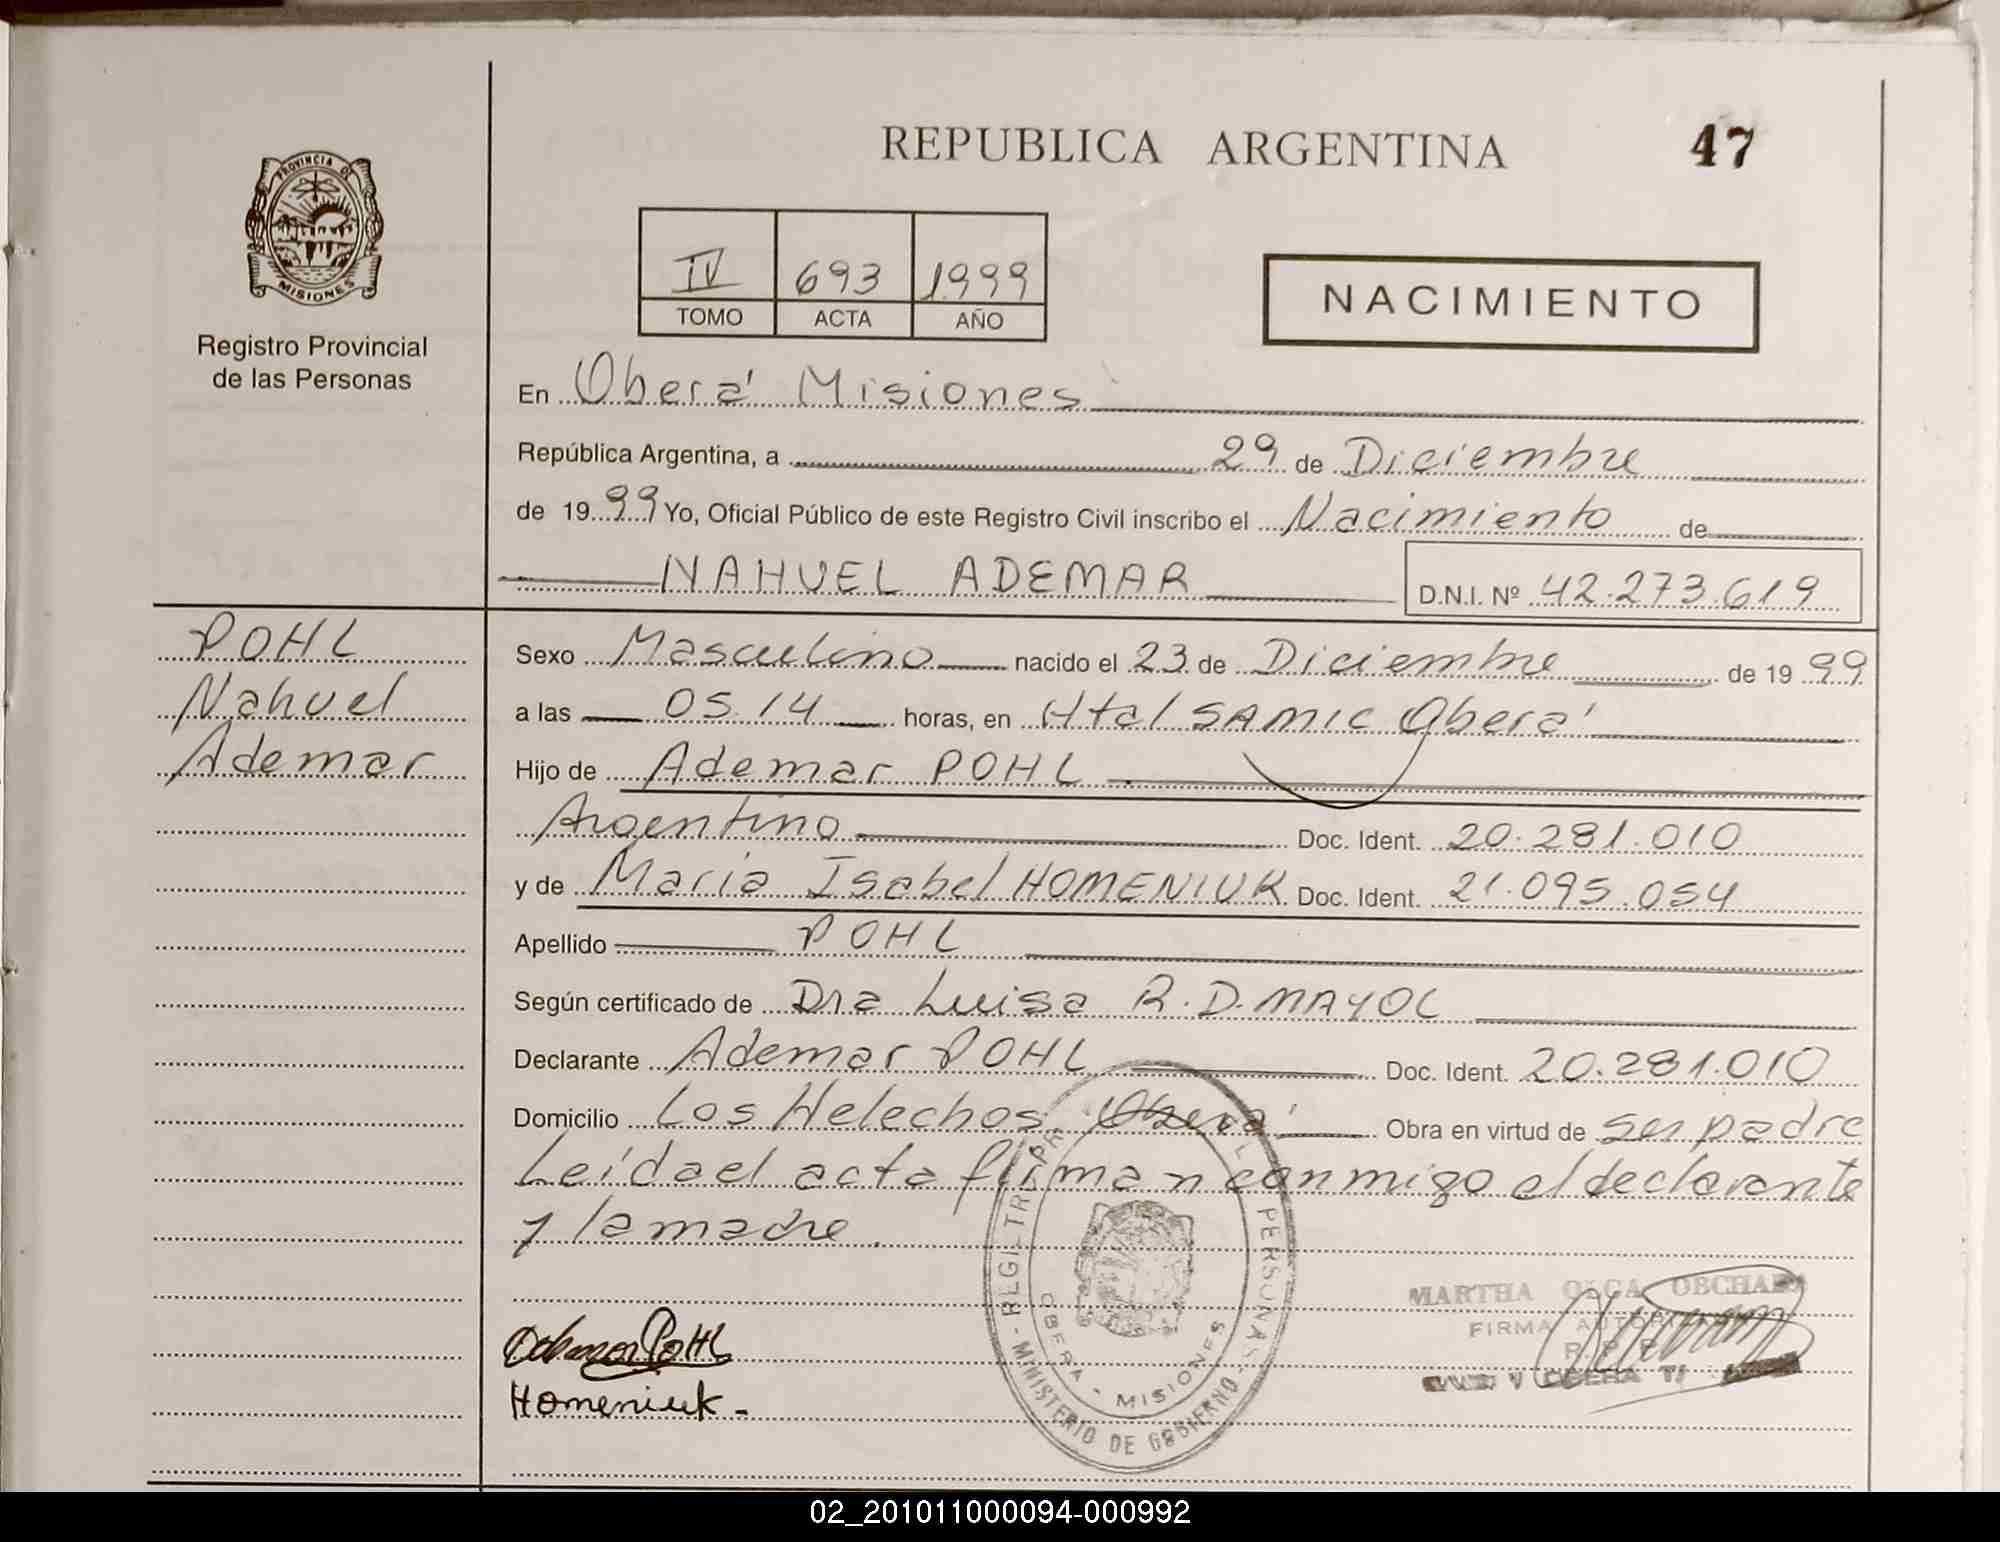 REPUBLICA ARGENTINA
47
PROVINCIA DE
MISIONES
Registro Provincial
de las Personas
IV 693 1999
TOMO ACTA AÑO
NACIMIENTO
En Oberá Misiones
República Argentina, a 29 de Diciembre
de 1999 Yo, Oficial Público de este Registro Civil inscribo el Nacimiento de
NAHUEL ADEMAR D.N.I. Nº 42.273.619
POHL
Nahuel
Ademar
Sexo Masculino nacido el 23 de Diciembre de 1999
a las 05.14 horas, en Htal SAMIC Oberá
Hijo de Ademar POHL
Argentino Doc. Ident. 20.281.010
y de Maria Isabel HOMENIUK Doc. Ident. 21.095.054
Apellido POHL
Según certificado de Dra Luisa R.D. MAYOL
Declarante Ademar POHL Doc. Ident. 20.281.010
Domicilio Los Helechos Oberá Obra en virtud de ser padre
Leída el acta firman conmigo el declarante
y la madre.
MARTHA OLGA
FIRMA
OBERA
Ademar POHL
Homeniuk -
PERSONAS - MINISTERIO DE GOBIERNO -
OBERA - MISIONES
02_201011000094-000992